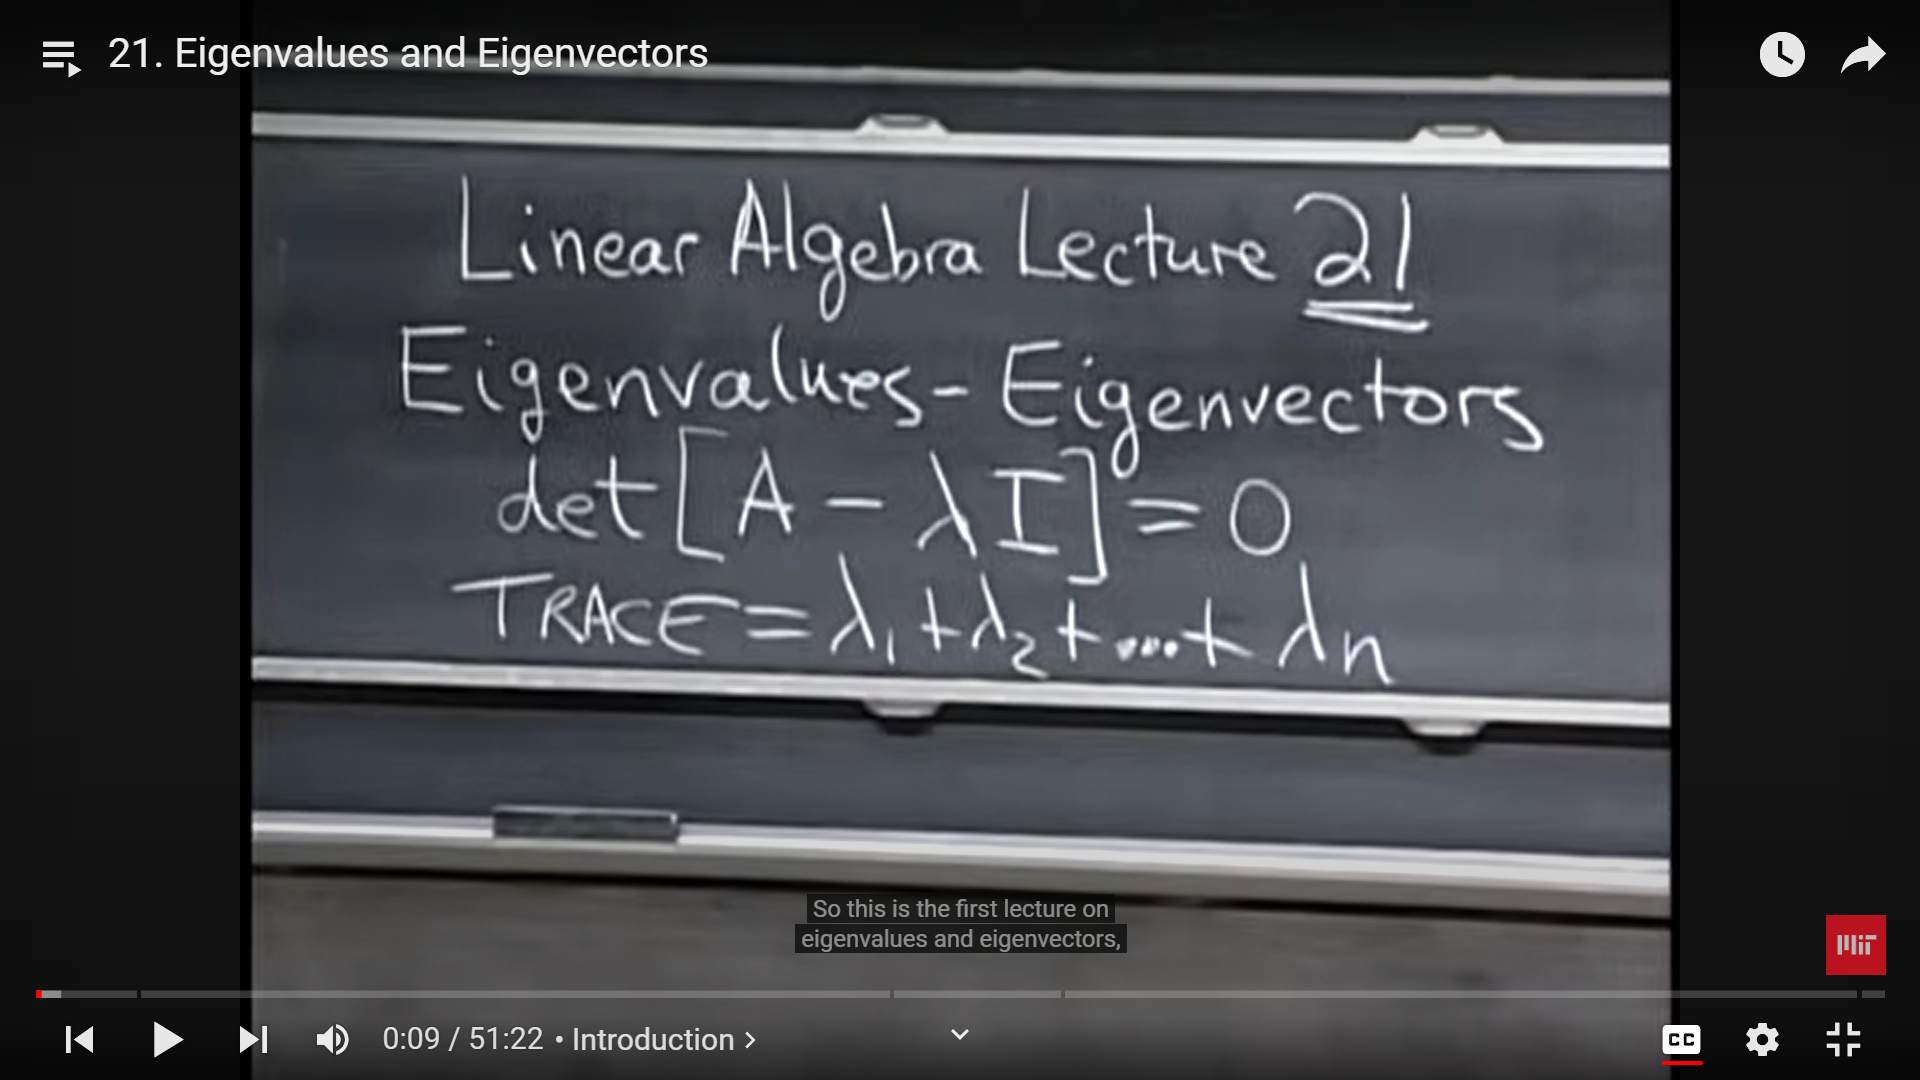 21. Eigenvalues and Eigenvectors
Linear Algebra Lecture 21
Eigenvalues - Eigenvectors
det[A - λI] = 0
TRACE = λ₁ + λ₂ + ... + λn
So this is the first lecture on
eigenvalues and eigenvectors,
MIT
0:09 / 51:22 • Introduction >
CC